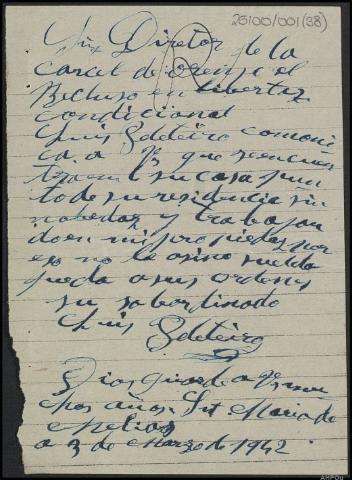 26100/001(38)
Sr Diretor de la
carcel de orense el
Recluso en libertaz
condicional
Luis Seteiro comoni
ca a Vs que se encuen
tra en su casa pun
to de su residencia sin
nobedaz y trabajan
do en mi propiedaz por
eso no le asino sueldo
queda a sus ordenes
su sobordinado
Luis Seteiro
Dios guarde a Vs mu
chos años. Sta Maria de
Melias
a 3 de Marzo de 1942
AHPOu